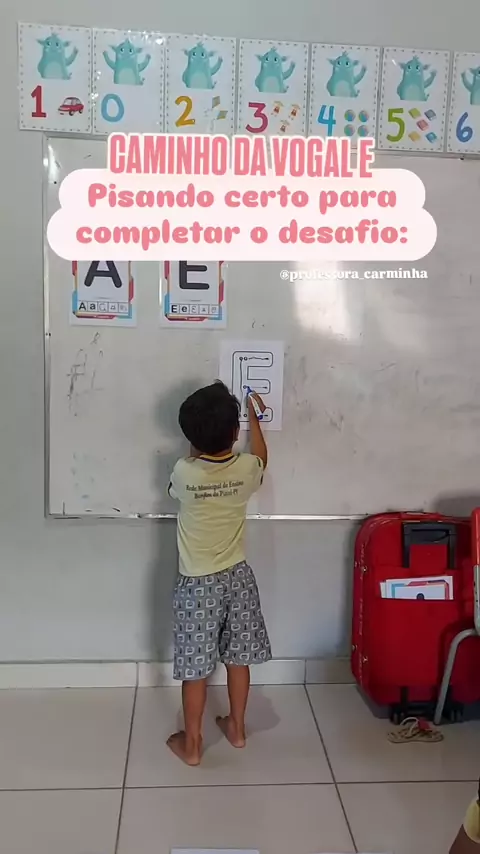 1 0 2 3 4 5 6
CAMINHO DA VOGAL E
Pisando certo para
completar o desafio:
@professora_carminha
A E
Aa
Ee
E
Rede Municipal de Ensino